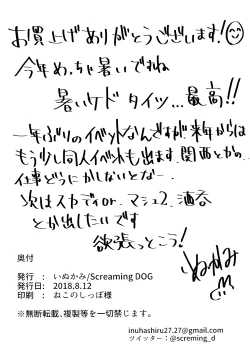 お買上げありがとうございます!
今年めっちゃ暑いですね
暑いケドタイツ…最高!!
一年ぶりのイベントなんですが来年からは
もう少し同人イベントも出ます。関西とか。
仕事どうにかしないとなー
次はスカディor.マシュ2.酒呑
とか出したいです
欲張っとこう!
いぬかみ
奥付
発行 : いぬかみ/Screaming DOG
発行日: 2018.8.12
印刷 : ねこのしっぽ様
※無断転載、複製等を一切禁じます。
inuhashiru27.27@gmail.com
ツイッター:@screming_d